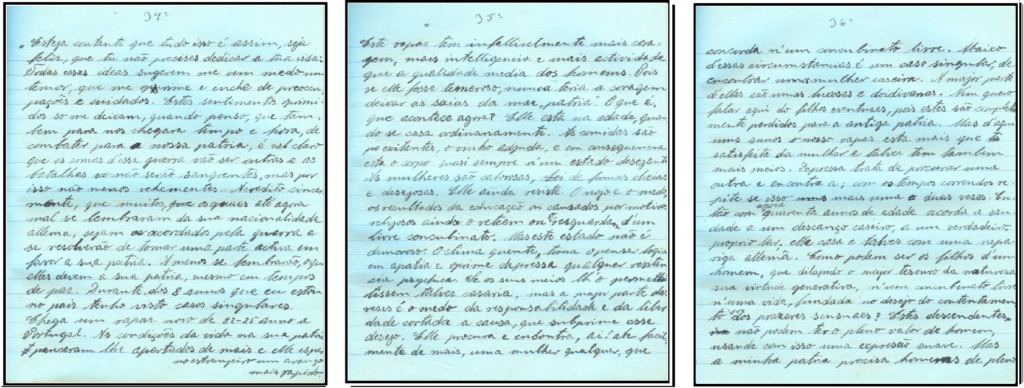 34ª
"Esteja contente que tudo isso é assim, seja
feliz, que tu não precises dedicar a tua
Todas essas ideas sugerem me um medo um
temor, que me oprime e enche de preoccu-
pações e cuidados. Estes sentimentos
dos so me deixam, quando penso, que tam-
bem para nos chegara tempo e hora, de
combater para a nossa patria, é ist claro
que as armas d'issa guerra vao ser outras e as
batalhas vo não serão sangrentas, mas por
isso não menos vehementes. Acredito since-
mente, que muitos, que os quaes até agora
mal se lembraram da sua nacionalidade
allemã, sejam os acordados pela guerra e
se resolverão de tomar uma parte activa em
favor a sua patria. A menos se lembrarão, o que
elles devem a sua patria, mesmo em tempos
de paz. Durante dos 8 annos que eu estou
no pais tenho visto casos singulares.
Chega um rapaz novo de 22-25 anno a
Portugal. As condições da vida na sua patria
pareceram lhe apertadas de mais e elle espera
no estrangeiro um avanço
mais rapido.
35ª
Este rapaz tem infallivelmente mais cora-
gem, mais intelligencia e mais actividade
que a qualidade media dos homens. Pois
se elle fosse temeroso, nunca teria a coragem
deixar as saias da mae "patria". O que é,
que acontece agora? Elle está na edade, quan-
do se casa ordinariamente. As comidas são
po exitentes, o vinho adjuda, e em consequencia
esta o corpo quasi sempre n'um estado desejante
As mulheres são calorosas, de formas cheias
e desejosas. Elle ainda resiste. O nojo e o medo,
os resultados da educação ou causados por motivos
religiosos ainda o retêem ou resguarda d'um
livre concubinato. Mas este estado não é
demoroso. O clima quente, torna o pensar logico
em apatia e oprime depressa qualquer resiten-
cia psychica. Se os seus meios lh'o permet-
tissem talvez casaria, mas a mejor parte das
veses é o medo da responsabilidade e da liber-
dade cortada a causa, que subprime esse
desejo. Elle procura e encontra, ai! até facil-
mente de mais, uma mulher qualquer, que
36ª
concorda n'um concubinato livre. Abaixo
d'essas circumstancias é um caso singular, de
encontrar uma mulher caseira. A major parte
d'ellas são umas e doidivanas. Nem quero
falar aqui do filhos eventuaes, pois estes são complet-
mente perdidos para a antiga patria. Mas d'aqui
uns annos o nosso rapaz esta mais que
satisfeita da mulher e talvez tem tambem
mais meios. Depressa trata de procurar uma
outra e encontra a; com os tempos correndos re-
pite se isso mais uma o duas veses. En-
tão com agora quarenta annos de edade acorda a sau-
dade a um descanço caseiro, a um verdadeiro,
proprio lar, elle casa e talvez com uma rapa-
riga allemã. Como podem ser os filhos d'um
homem, que dilapido o major tesouro da naturesa
sua virtude generativa, n'um concubinato livre
n'uma vida, fundada no desejo do contentamen-
to dos prazeres sensuaes? Estes descendentes,
não podem ter o pleno valor de homem,
usando com isso uma expressão suave. Mas
a minha patria precisa homems de pleno